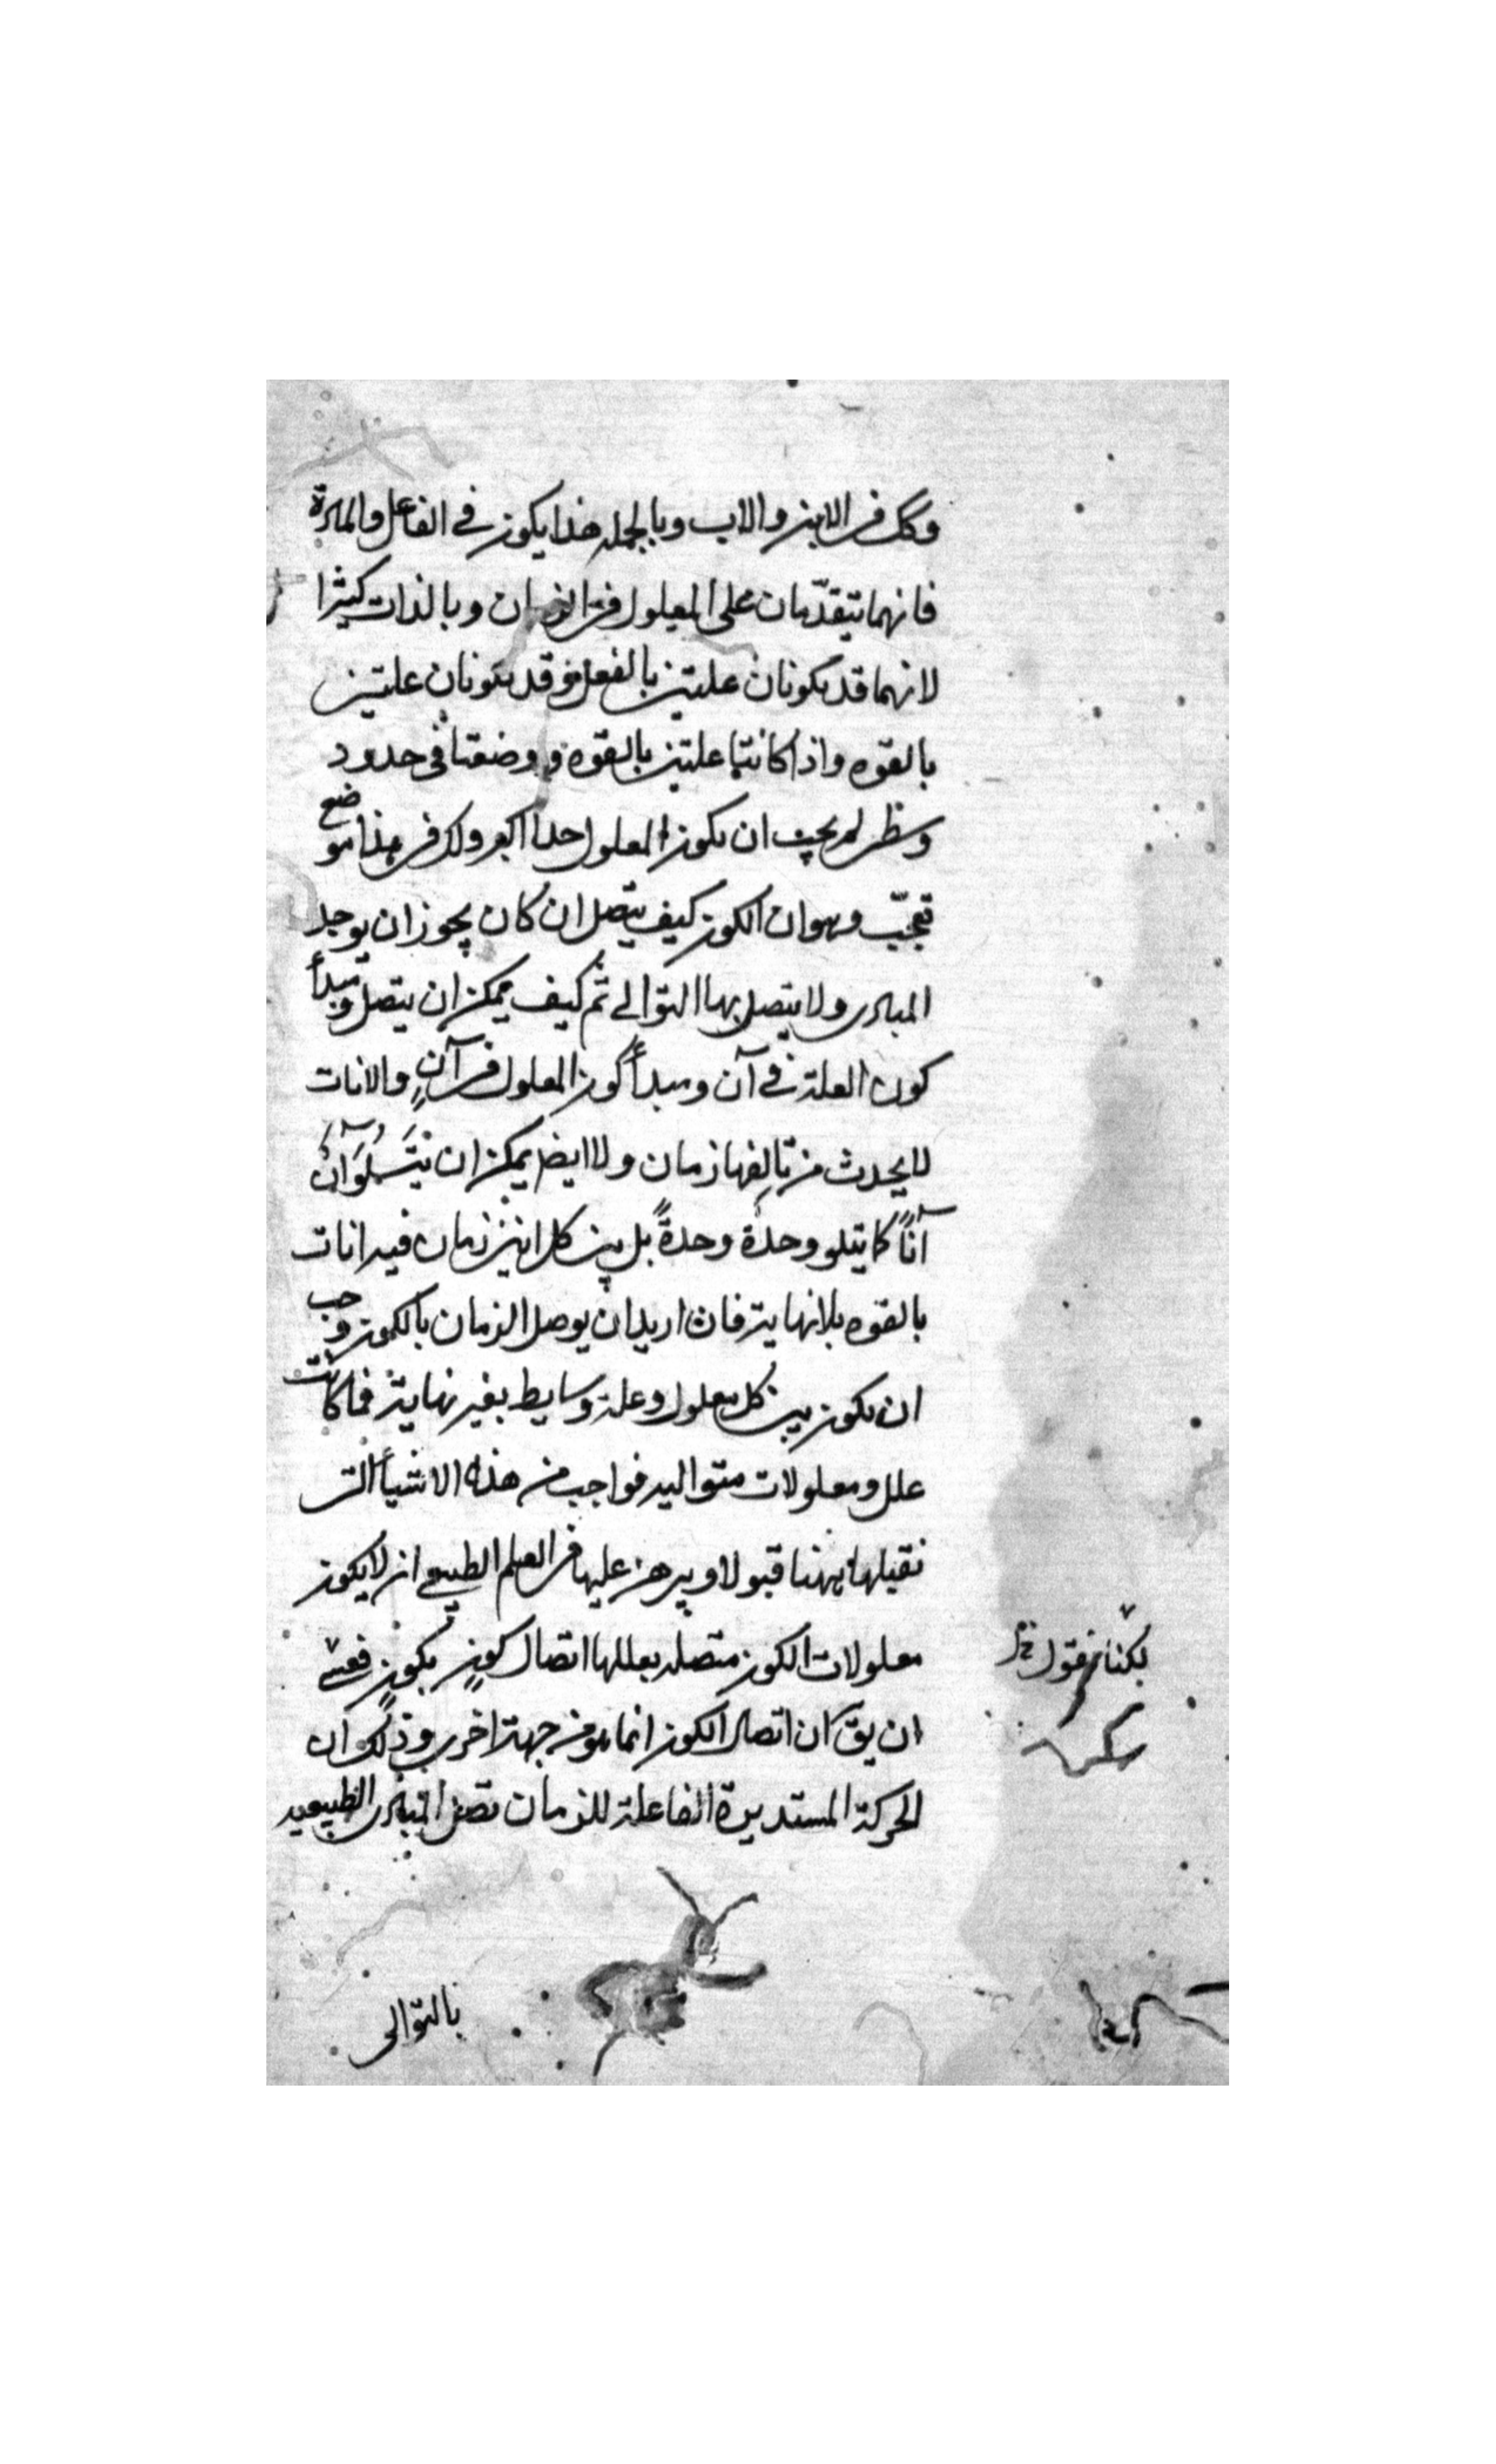 وكك فى الابن والاب وبالجمله هذا يكون فى الفاعل والمادة
فانهما يتقدّمان على المعلول فى الزمان وبالذات كثيرا
لانهما قد يكونان علتين بالفعل وقد يكونان علتين
بالقوه واذا كانتا علتين بالقوه و وضعتا فى حدود
وسطى لم يجب ان يكون المعلول حدا اكبر ولكن فى هذا موضع
تعجّب وهو ان الكون كيف يتصل ان كان يجوز ان يوجد
المبادى ولا يتصل بها التوالى ثم كيف يمكن ان يتصل ومبدأ
كون العلة فى آن ومبدأ كون المعلول فى آنٍ والانات
لا يحدث من تالفها زمان ولا ايضا يمكن ان يتلو آنٌ
آناً كما يتلو وحدة وحدةً بل بين كل انين زمان فيه انات
بالقوه بلانهاية فان اريد ان يوصل الزمان بالكون وجب
ان يكون بين كل معلول وعلة وسايط بغير نهاية فما كانت
علل ومعلولات متواليه فواجب من هذه الاشياء التى
نقبلها يهنا قبولا ويبرهن عليها فى العلم الطبيعى ان لا يكون
معلولات الكون متصله بعللها اتصال كونٍ بكونٍ فعسى
ان يقّ ان اتصال الكون انما هو من جهة اخرى وذلك ان
الحركة المستديرة الفاعلة للزمان تصل المبادى الطبيعيه
لكنا نقول
بالتوالى